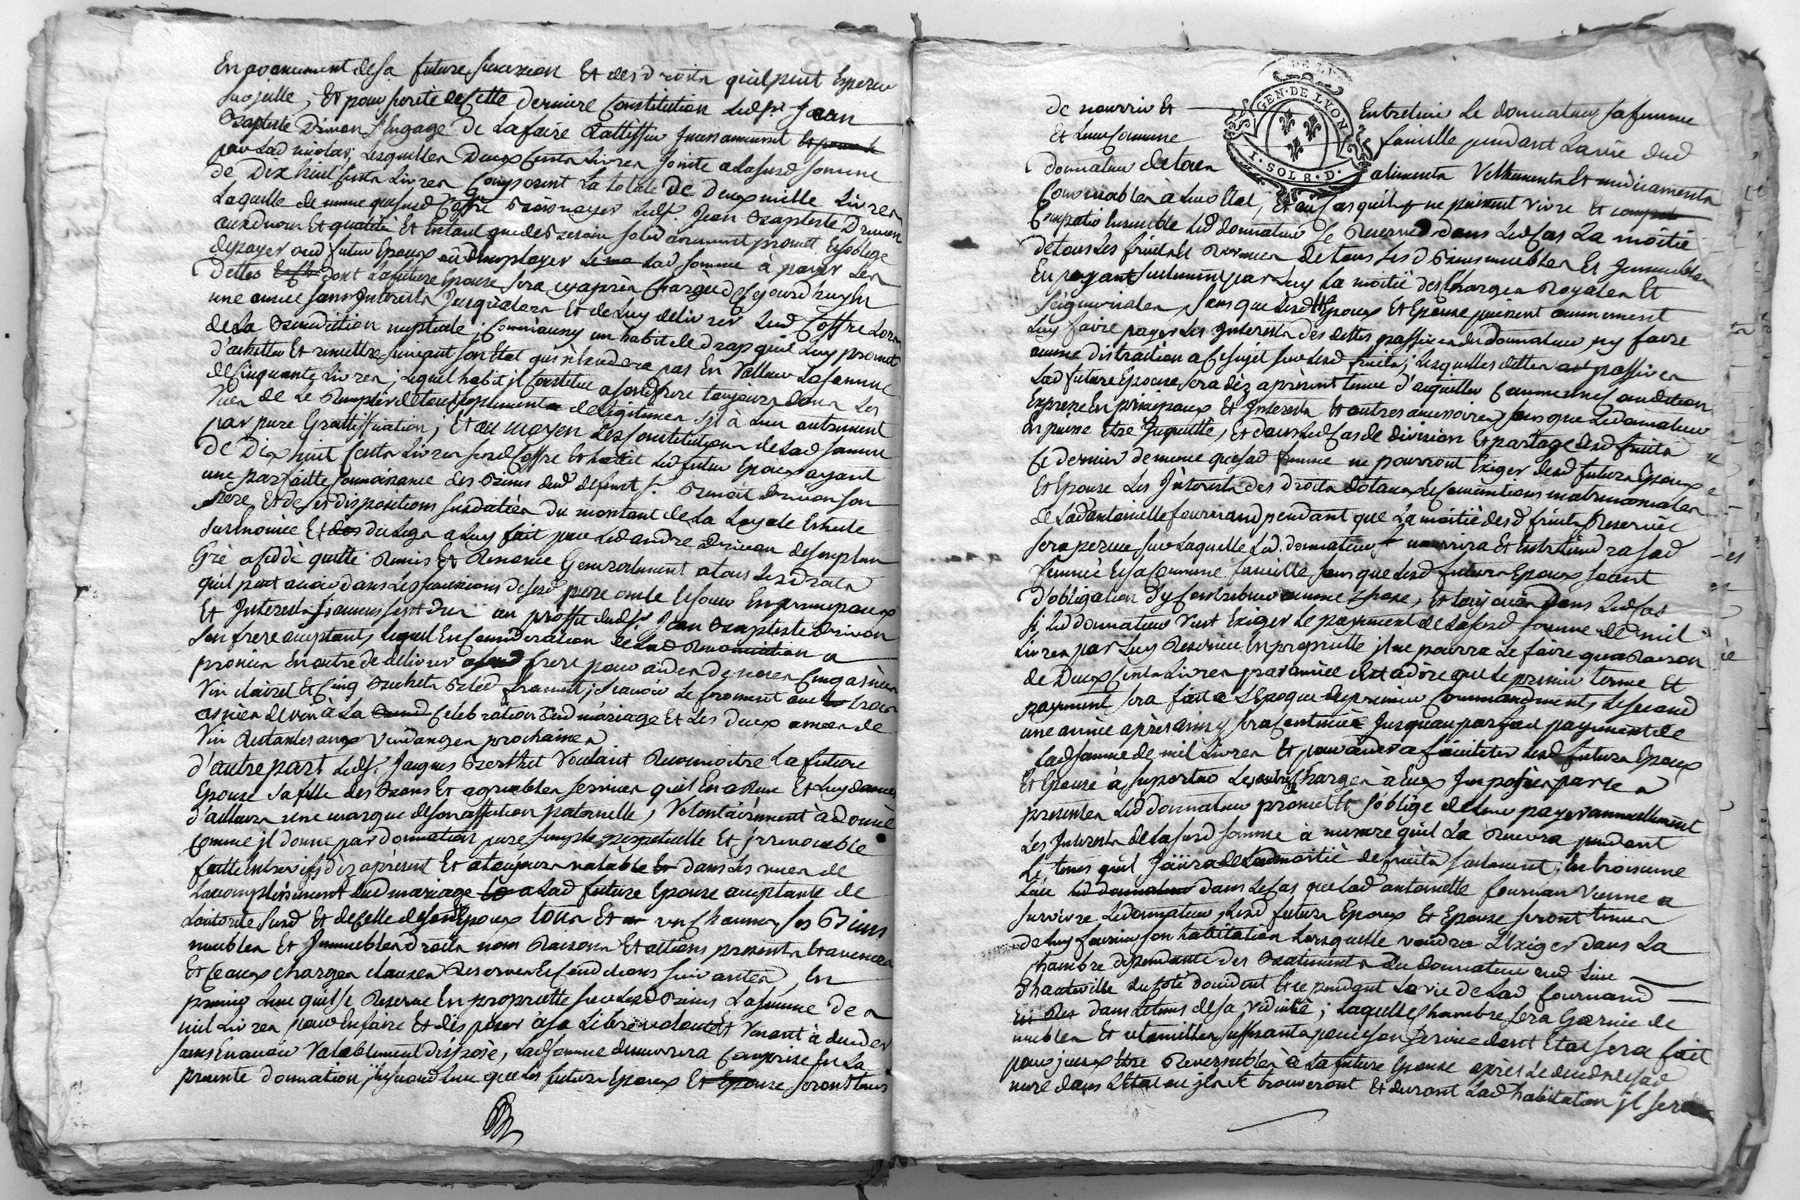 En avancement de sa future succession Et des droits qu'il peut Esperer
sur jcelle, Et pour sureté de Cette derniere Constitution Led. sr. Jean
Baptiste Drivon s'Engage de La faire Rattiffier
par Lad nicolas, Lesquelles Deux Cents Livres jointe a Lasusd somme
de Dix huit Cents Livres Composent La totale De Deux mille Livres
Laquelle de meme que Coffre Ledsr. Jean Baptiste Drivon
auxd nom Et qualité Et Entant que de Besoin promet Et soblige
de payer aud futur Epoux ou d'employer Lad somme à payer Les
dettes dont La future Epouse sera cyaprès Chargée d'huy En
une année sans Interests jusqu'alors Et de Luy delivrer Led Coffre Lors
de La Benediction nuptiale; Comm'aussy un habit de drap qu'il Luy promet
d'achetter Et remettre suivant son Etat qui n'Excedera pas En Valleur La somme
de Cinquante Livres, Lequel habit jl Constitue a sond frere toujours dans Les
Vües de Le Remplir de tous supplement de Legitimes S'jl à Lieu autrement
par pure Grattiffication, Et au moyen des Constitutions de Lad somme
de Dix huit Cents Livres susd Coffre Et habit Led futur Epoux ayant
une parfaitte Connoissance des Biens dud deffunt s. Benoit Drivon son
Pere, Et de ses dispositions susdattées du montant de La Loyale Echute
surnomée Et du Legs a Luy fait par Led andré Drivon de son plein
Gré a Cédé quitté Remis Et Renoncé Generalement a tous Les droits
qu'il peut avoir dans Les successions de sesd pere oncle Et soeur En principaux
Et Interests au proffit dud sr. Jean Baptiste Drivon
son frere acceptant, Lequel En Consideration de Lad Renonciation a
promis En outre de delivrer a sond frere pour aider de noces Cinq asnées
Vin Clairet Et Cinq Bichets Bled froment, sçavoir Le froment avec trois
asnées de vin a La Celebration dud mariage Et Les deux asnées de
Vin Restantes aux Vendanges prochaines
d'autre part Led sr. Jacques Berthet Voulant Reconnoitre La future
Epouse sa fille des Bons Et agreables services qu'il En a Reçu Et Luy donner
d'ailleurs une marque de son affection paternelle, Volontairement à donné
comme jl donne par donnation pure simple perpetuelle Et jrrevocable
faitte Entre vifs dès apresent Et a toujours valable Et dans Les vües de
L'accomplissement dud mariage a Lad future Epouse acceptante de
L'autorité susd Et de Celle de sond Epoux tous Et un Chacuns ses Biens
meubles Et Immeubles droits noms Raisons Et actions presents Et avenirs
Et Ce aux charges clauses Reserves Et Conditions suivantes, En
premier Lieu qu'il se Reserve En proprietté sur Lesd Biens La somme de
mil Livres pour En faire Et disposer à sa Libre volonté Et Venant à deceder
sans En avoir Valablement disposé, Lad somme demeurera Comprise En La
presente donnation, En second Lieu que Les futurs Epoux Et Epouse seront tenus
GEN. DE LYON
I. SOL 8. D.
de nourrir Et Entretenir Le donnateur sa femme
Et Leur Commune famille pendant La vie dud
donnateur de tous aliments Vettements Et medicaments
Convenables a Leur Etat, Et au Cas qu'ils ne puissent vivre Et
Compatir Ensemble Led donnateur se Reserve dans Led Cas La moitié
de tous Les fruits Et Revenus de tous Lesd Biens meubles Et Immeubles
En payant seulement par Luy La moitié des Charges Royales Et
seigneuriales sans que Lesd Epoux Et Epouse puissent aucunement
Luy faire payer Les Interests des dettes passives du donnateur, ny faire
aucune distraction a Ce sujet sur Lesd fruits; Lesquelles dettes passives
Lad future Epouse sera dès apresent tenue d'acquitter Comme une Condition
Expresse En principaux Et Interests Et autres accessoires, sans que Le donnateur
En puisse Etre Inquietté, Et dans Led Cas de division Et partage desd fruits
Ce dernier de meme que sad femme ne pourront Exiger desd futurs Epoux
Et Epouse Les Interests des droits dotaux Et Conventions matrimoniales
de Lad antoinette fournand pendant que La moitié desd fruits Reservée
sera perçue sur Laquelle Led. donnateur nourrira Et Entretiendra sad
femme Et sa Commune famille sans que Lesd futurs Epoux soient
d'obligation d'y Contribuer aucune chose, Et toujours dans Led Cas
si Led donnateur Veut Exiger Le payement de Lasusd somme de mil
Livres par Luy Reservée En proprietté jl ne pourra Le faire qu'a Raison
de Deux Cents Livres par année C'est adire que Le premier terme Et
payement sera fait a L'Epoque du premier Commandement, Le second
une année après ainsy sera Continué Jusqu'au parfait payement de
Lad somme de mil Livres Et pour aider a faciliter Lesd futurs Epoux
Et Epouse à suporter Les autres Charges à Eux Imposées par Ces
presentes Led donnateur promet Et s'oblige de Leur payer annuellement
Les Interests de Lasusd somme à mesure qu'il La Recevra pendant
Le tems qu'il Joüira de Lad moitié de fruits seulement, En troisieme
Lieu dans Le Cas que Lad antoinette fournan Vienne a
survivre Le donnateur, Lesd futurs Epoux Et Epouse seront tenus
de Luy fournir son habitation Lorsqu'elle voudra L'Exiger dans La
chambre dependante des Batiments du donnateur aud Lieu
d'hauteville du coté d'occident Et ce pendant La vie de Lad fournand
dans Le tems de sa viduité; Laquelle Chambre sera Garnie de
meubles Et ustensilles suffisants pour son service dont Etat sera fait
pour jceux Etre Reversibles à La future Epouse après Le deces de sad
mere dans L'Etat ou jls se trouveront Et durant Lad habitation jl sera